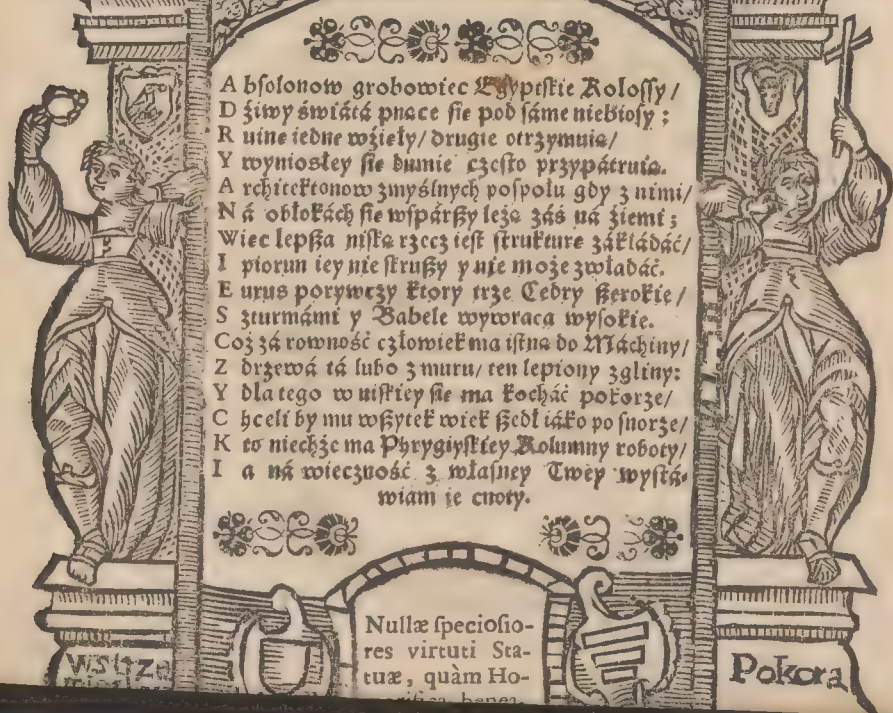 A bsolonow grobowiec Egyptskie Kolossy/
D źiwy świátá pnące sie pod sáme niebiosy;
R uinę iedne wźieły/ drugie otrzymuią/
Y wyniosłey się dumie często przypátruią.
A rchitektonow zmyślnych pospołu gdy z nimi/
N á obłokách sie wspárszy leżą záś ná źiemi;
W iec lepsza niska rzecz iest strukturę zákłádáć/
I piorun iey nie skruszy y nie może zwładáć.
E urus porywczy ktory trze Cedry szerokie/
S zturmámi y Babele wywraca wysokie.
C oż zá rowność człowiek ma istną do Máchiny/
Z drzewá tá lubo z muru/ ten lepiony z gliny:
Y dla tego w niskiey się ma kocháć pokorze/
C hceli by mu wszytek wiek szedł iáko po snorze/
K to niechże ma Phrygiyskiey Kolumny roboty/
I a ná wieczność z własney Twey wystá-
wiam ie cnoty.
Nullæ speciosio-
res virtuti Sta-
tuæ, quàm Ho-
Wstrze
Pokora